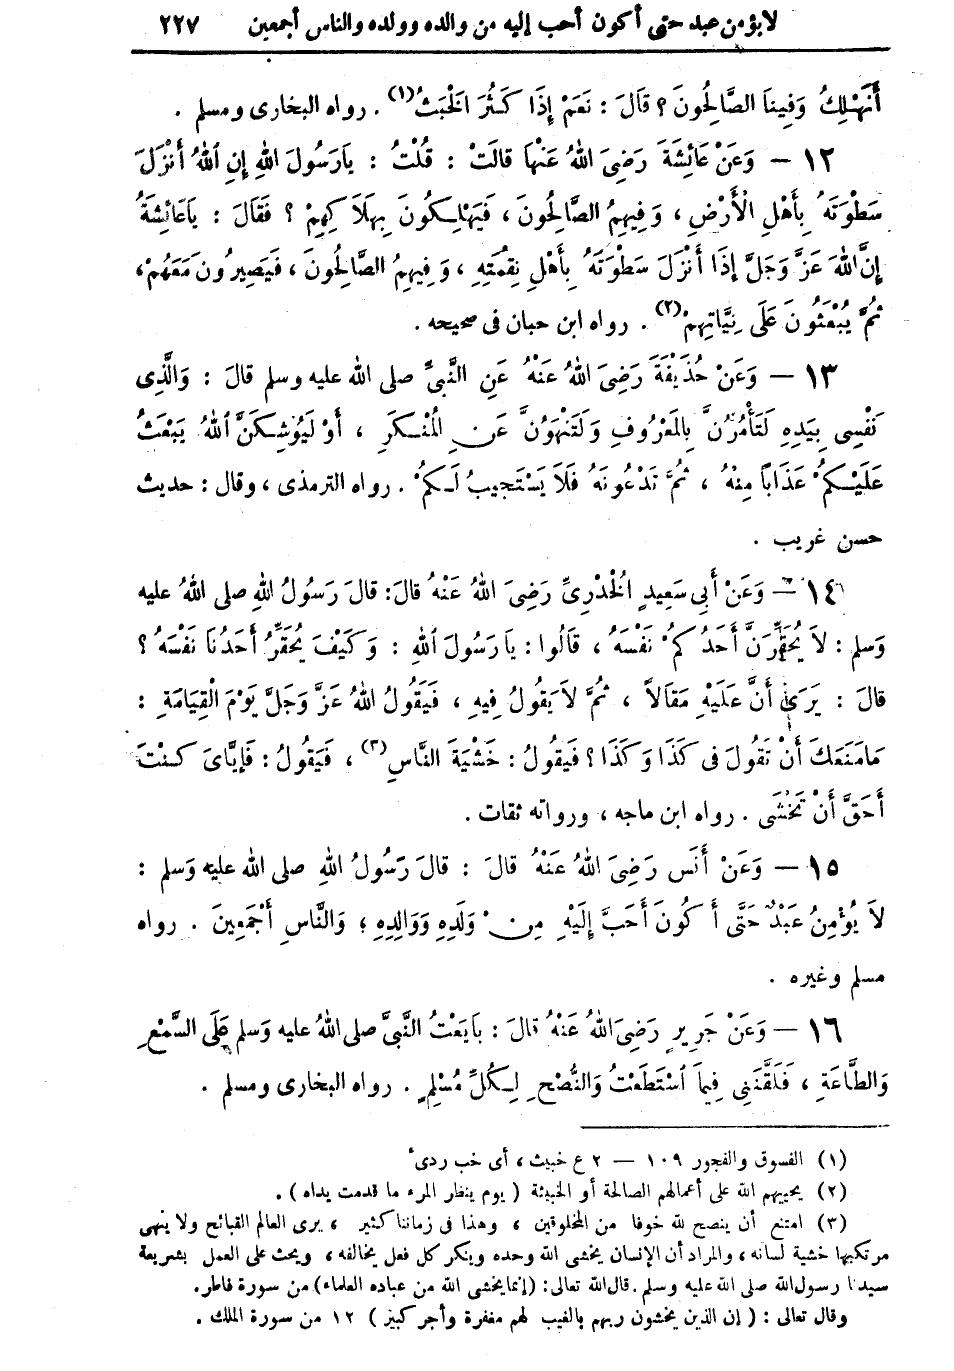 لا يؤمن عبد حتى أكون أحب إليه من والده وولده والناس أجمعين ٢٢٧
أَنَهْلِكُ وَفِينَا الصَّالِحُونَ؟ قَالَ: نَعَمْ إِذَا كَثُرَ الْخَبَثُ (١). رواه البخارى ومسلم.
١٢ — وَعَنْ عَائِشَةَ رَضِىَ اللهُ عَنْهَا قَالَتْ: قُلْتُ: يَارَسُولَ اللهِ إِنِ اللهُ أَنْزَلَ
سَطْوَتَهُ بِأَهْلِ الْأَرْضِ، وَفِيهِمُ الصَّالِحُونَ، فَيَهْلِكُونَ بِهَلَاكِهِمْ؟ فَقَالَ: يَاعَائِشَةُ
إِنَّ اللهَ عَزَّ وَجَلَّ إِذَا أَنْزَلَ سَطْوَتَهُ بِأَهْلِ نِقْمَتِهِ، وَفِيهِمُ الصَّالِحُونَ، فَيَصِيرُونَ مَعَهُمْ،
ثُمَّ يُبْعَثُونَ عَلَى نِيَّاتِهِمْ (٢). رواه ابن حبان فى صحيحه.
١٣ — وَعَنْ حُذَيْفَةَ رَضِىَ اللهُ عَنْهُ عَنِ النَّبِىِّ صلى الله عليه وسلم قَالَ: وَالَّذِى
نَفْسِى بِيَدِهِ لَتَأْمُرُنَّ بِالْمَعْرُوفِ وَلَتَنْهَوُنَّ عَنِ الْمُنْكَرِ، أَوْ لَيُوشِكَنَّ اللهُ يَبْعَثُ
عَلَيْكُمْ عَذَابًا مِنْهُ، ثُمَّ تَدْعُونَهُ فَلَا يَسْتَجِيبُ لَكُمْ. رواه الترمذى، وقال: حديث
حسن غريب.
١٤ — وَعَنْ أَبِى سَعِيدٍ الْخُدْرِىِّ رَضِىَ اللهُ عَنْهُ قَالَ: قَالَ رَسُولُ اللهِ صلى اللهُ عليه
وَسلم: لَا يُحَقِّرَنَّ أَحَدُكُمْ نَفْسَهُ، قَالُوا: يَارَسُولَ اللهِ: وَكَيْفَ يُحَقِّرُ أَحَدُنَا نَفْسَهُ؟
قَالَ: يَرَى أَنَّ عَلَيْهِ مَقَالًا، ثُمَّ لَا يَقُولُ فِيهِ، فَيَقُولُ اللهُ عَزَّ وَجَلَّ يَوْمَ الْقِيَامَةِ:
مَامَنَعَكَ أَنْ تَقُولَ فِى كَذَا وَكَذَا؟ فَيَقُولُ: خَشْيَةَ النَّاسِ (٣)، فَيَقُولُ: فَإِيَّاىَ كُنْتَ
أَحَقَّ أَنْ تَخْشَى. رواه ابن ماجه، ورواته ثقات.
١٥ — وَعَنْ أَنَسٍ رَضِىَ اللهُ عَنْهُ قَالَ: قَالَ رَسُولُ اللهِ صلى الله عليه وَسلم:
لَا يُؤْمِنُ عَبْدٌ حَتَّى أَكُونَ أَحَبَّ إِلَيْهِ مِنْ وَلَدِهِ وَوَالِدِهِ، وَالنَّاسِ أَجْمَعِينَ. رواه
مسلم وغيره.
١٦ — وَعَنْ جَرِيرٍ رَضِىَ اللهُ عَنْهُ قَالَ: بَايَعْتُ النَّبِىَّ صلى اللهُ عليه وَسلم عَلَى السَّمْعِ
وَالطَّاعَةِ، فَلَقَّنَنِى فِيمَا اسْتَطَعْتُ وَالنُّصْحِ لِكُلِّ مُسْلِمٍ. رواه البخارى ومسلم.
(١) الفسوق والفجور ١٠٩ — ٢ ع خبيث، أى خب ردىء
(٢) يحييهم الله على أعمالهم الصالحة أو الخبيثة (يوم ينظر المرء ما قدمت يداه).
(٣) امتنع أن ينصح لله خوفا من المخلوقين، وهذا فى زماننا كثير، يرى العالم القبائح ولا ينهى
مرتكبها خشية لسانه، والمراد أن الإنسان يخشى الله وحده وينكر كل فعل يخالفه، ويحث على العمل بشريعة
سيدنا رسول الله صلى الله عليه وسلم. قال الله تعالى: (إنما يخشى الله من عباده العلماء) من سورة فاطر.
وقال تعالى: (إن الذين يخشون ربهم بالغيب لهم مغفرة وأجر كبير) ١٢ من سورة الملك.